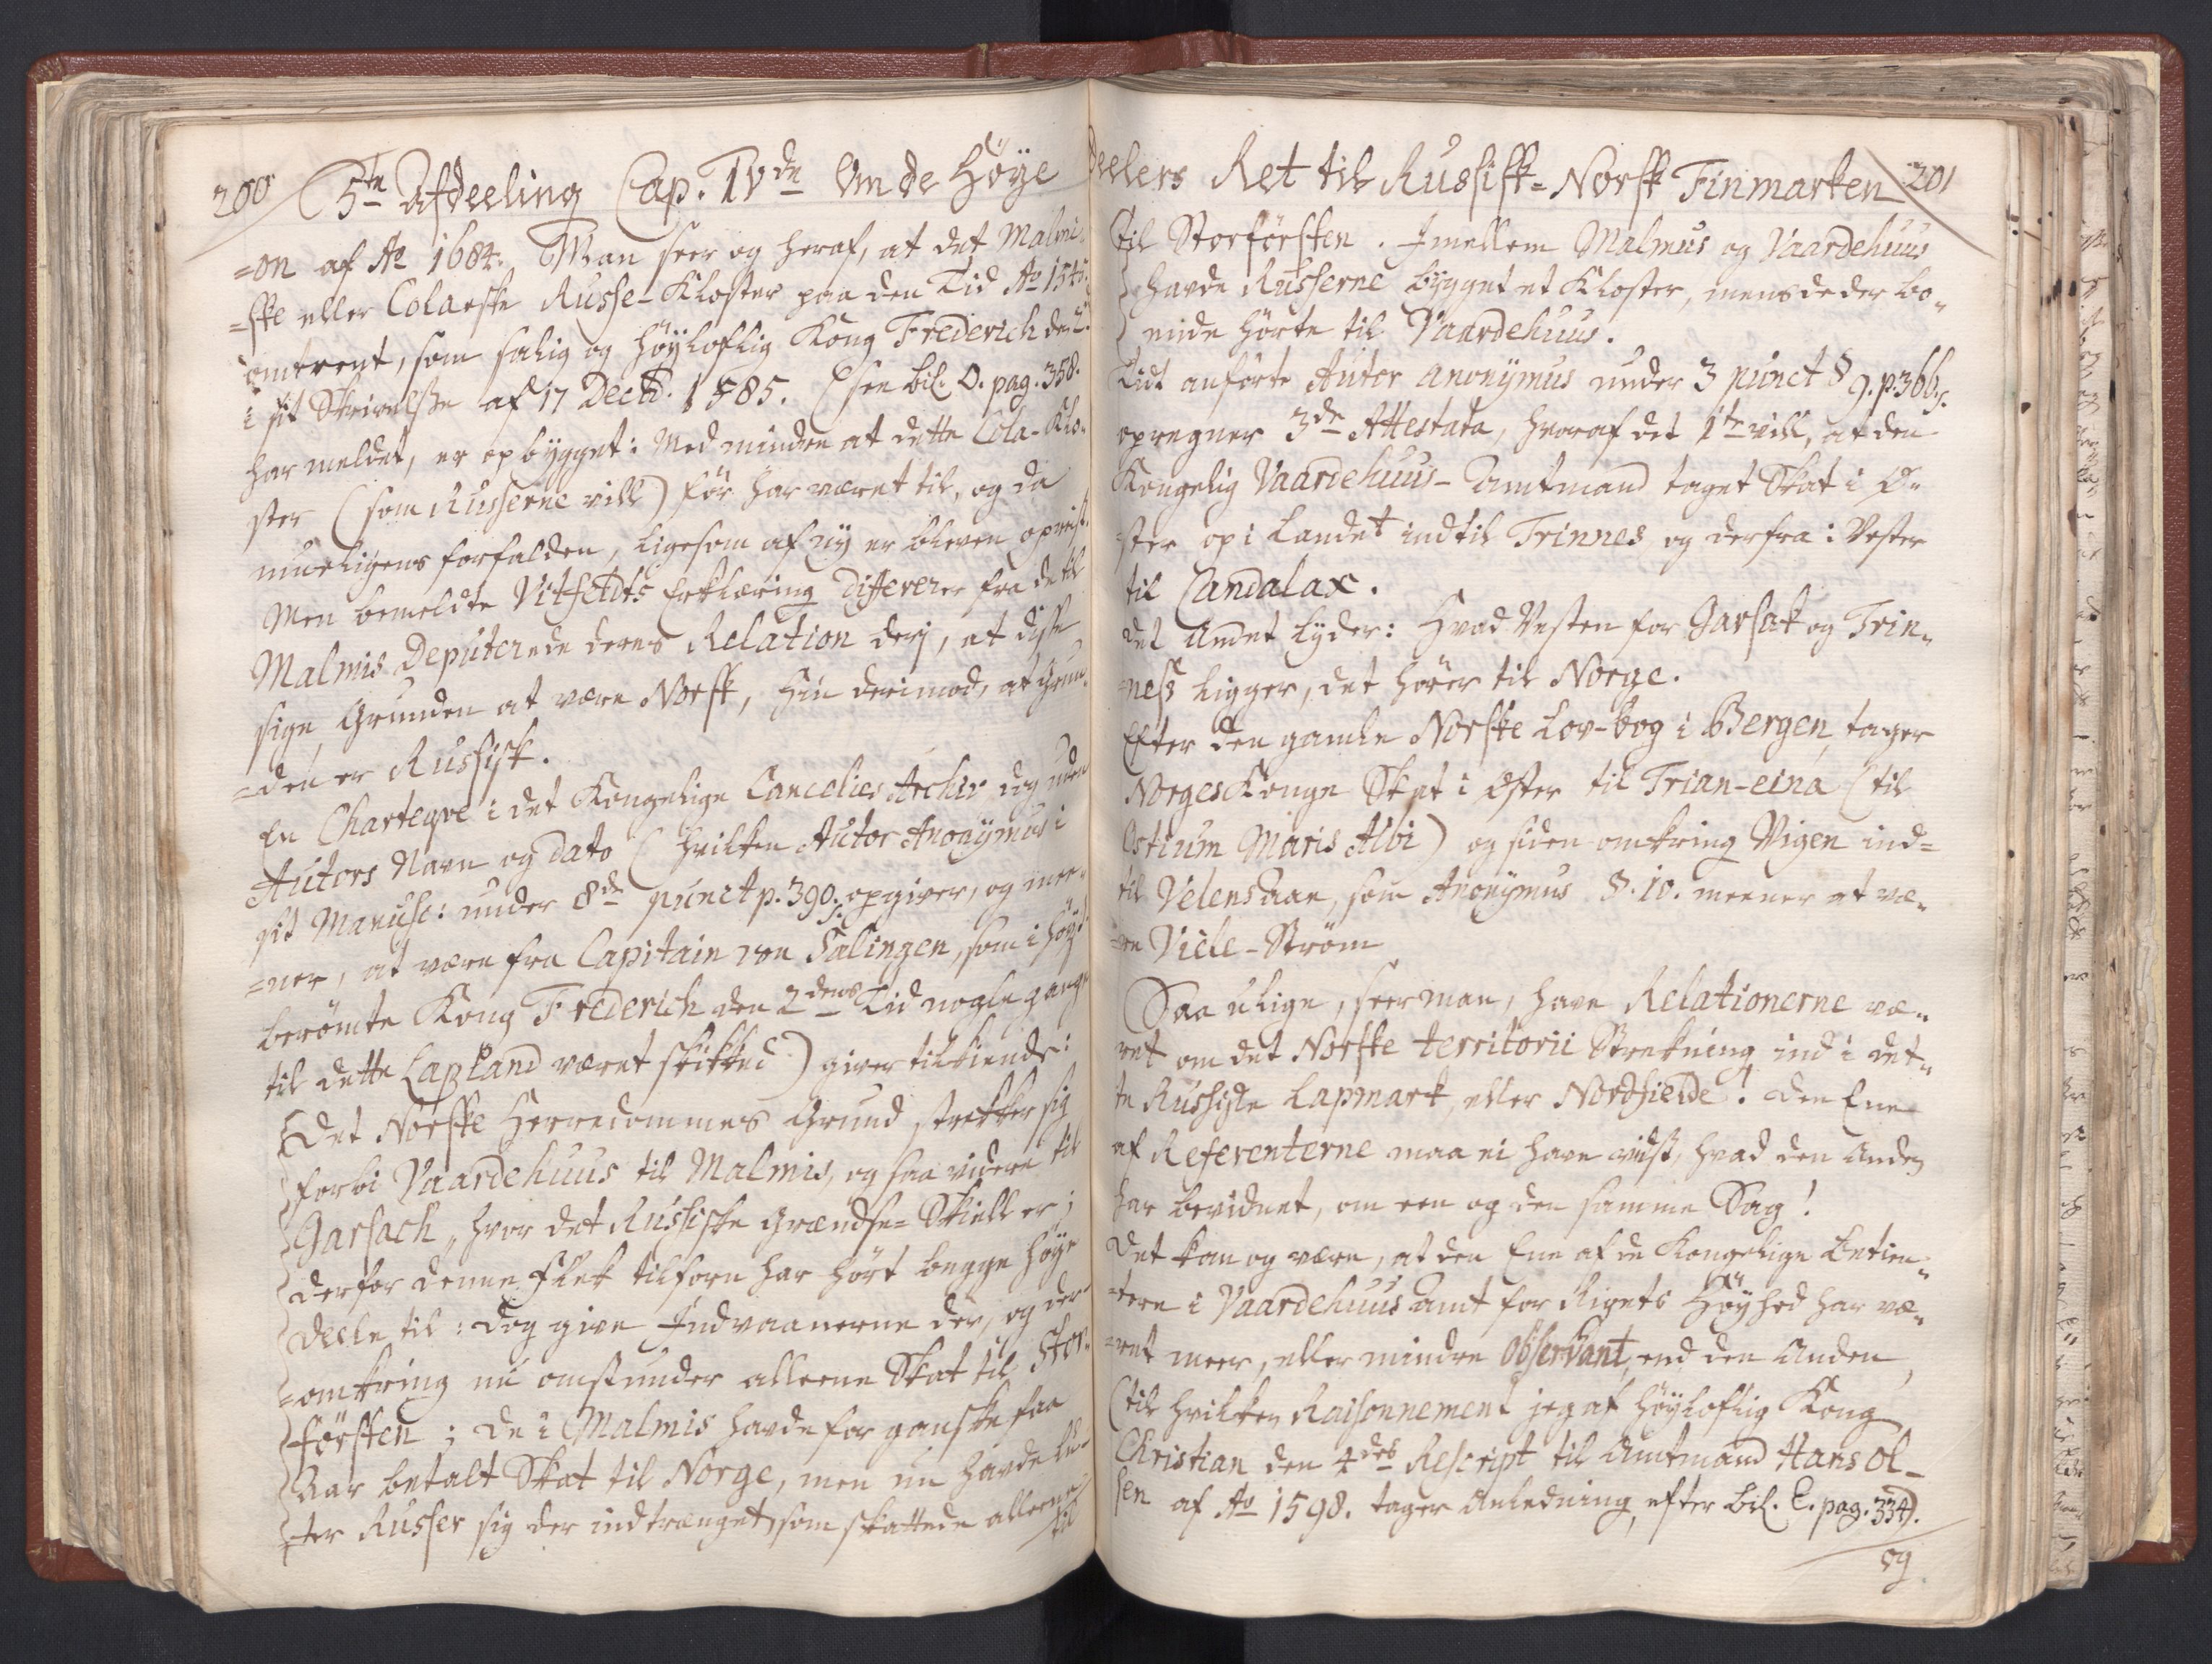 200 5te Afdeeling Cap. IVde Om de Høye
=on af Ao 1684. Man seer og heraf, at det Malmi-
=ske eller Colaeske Russe-Kloster paa den Tid Ao 1545
omtrent, som salig og høyloflig Kong Frederich den 2den
i sit Skrivelsse af 17 Decb. 1585. (see bil. O. pag. 358.
har meldet, er opbygget: Med mindre at dette Cola-Klo-
ster (som Russerne vill) før har været til, og da
mueligens forfalden, ligesom af ny er bleven opreist.
Men bemeldte Vitfeldts Erklæring differerer fra de til
Malmis Deputerede deres Relation derj, at disse
sige Grunden at være Norsk, hin derimod, at Grun-
=den er Russisk.
En Charteqve i det Kongelige Cancelies Archiv dog uden
Autors Navn og dato (hvilken Autor Anonymus i
sit Manusc: under 8de punct p. 390. s: opgiver, og mee-
=ner, at være fra Capitain von Salingen, som i høy-
berømte Kong Frederich den 2dens Tid nogle gange
til dette Lapland været skikked) giver tilkiende:
Det Norske Herredommes Grund strekker sig
forbi Vaardehuus til Malmis, og saa videre til
Garsach, hvor det Russiske Grændse-Skiell er;
derfor denne Flek tilforn har hørt begge høye
Deele til: dog give Indvaanerne der, og der-
=omkring nu omstunder alleene Skat til Stor-
førsten; De i Malmis havde for ganske faa
Aar betalt Skat til Norge, men nu havde lu-
ter Russer sig der indtrænget, som skattede alleene
til
deelers Ret til Russisk-Norsk Finmarken 201
til Storførsten. Imellem Malmus og Vaardehuus
havde Russerne bygget et Kloster, mens de der bo-
ende hørte til Vaardehuus.
Tidt anførte Autor anonymus under 3 punct § 9. p. 366. s.
opregner 3de Attestata, hvoraf det 1te vill, at den
Kongelig Vaardehuus-Amtmand taget Skat i O-
ster op i Landet indtil Trinnes og derfra i Vester
til Candalax.
det Andet Lyder: Hvad Vesten for Garsak og Trin-
=ness ligger, det hører til Norge.
Efter den gamle Norske Lov-bog i Bergen, tager
Norges Konge Skat i Øster til Trian-eina (til
Ostium Maris Albi) og siden omkring Vigen ind=
til Velens Aae, som Anonymus §. 10. meener at væ-
=re Viele-Strøm
Saa ulige, seer man, have Relationerne væ-
ret om det Norske territorii Strekning ind i det-
te Russiske Lapmark, eller Nordfielde! Den Ene
af Referenterne maa ei have vidst, hvad den Anden
har bevidnet, om een og den samme Sag!
Det kan og være, at den Ene af de Kongelige Betien-
=tere i Vaardehuus Amt for Rigets Høyhed har væ-
=ret meer, eller mindre Observant, end den Anden,
(til hvilken Raisonnement jeg af høyloflig Kong
Christian den 4des Rescript til Amtmand Hans Ol-
sen af Ao 1598. tager Anledning, efter bil. E. pag. 334).
og